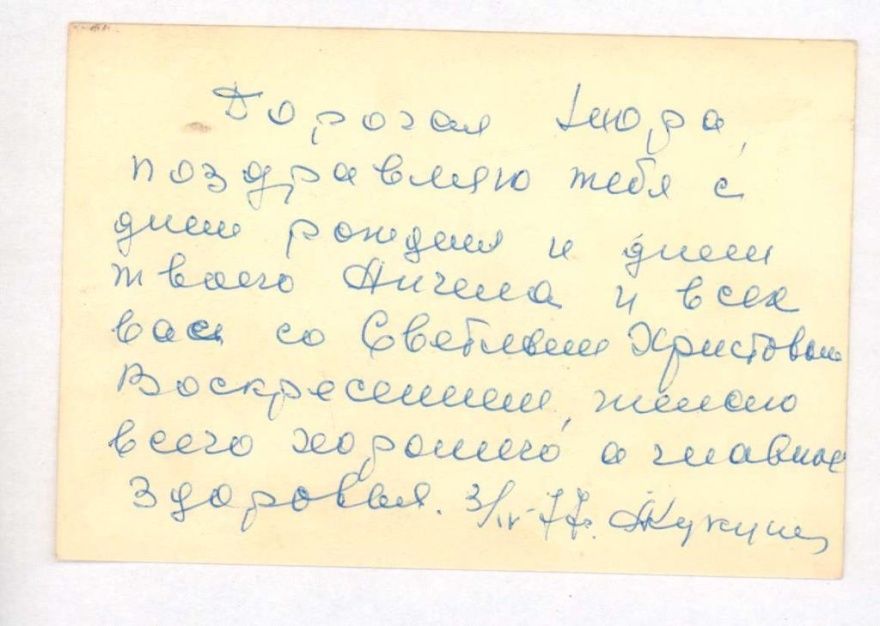 Дорогая Нюра,
поздравляю тебя с
днем рождения и днем
твоего Ангела и всех
вас со Светлым Христовым
Воскресением, желаю
всего хорошего, а главное
здоровья. 3/IV-77г.